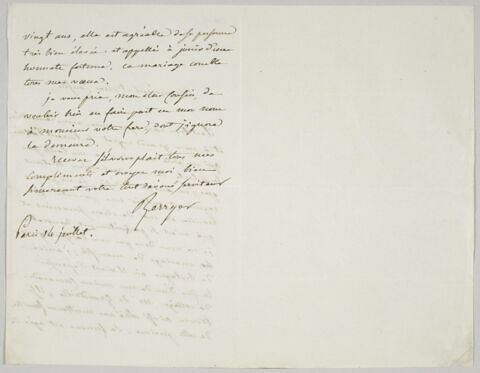 vingt ans, elle est agréable de sa personne
très bien élevée et appellée à jouir d'une
honnete fortune. ce mariage comble
tous mes vœux.
je vous prie, mon cher Cousin, de
vouloir bien en faire part en mon nom
à monsieur votre frere, dont j'ignore
la demeure.
recevez s'il vous plait tous mes
compliments et croyez moi bien
sincerement votre tout dévoué serviteur
Berryer
Paris 14 juillet.